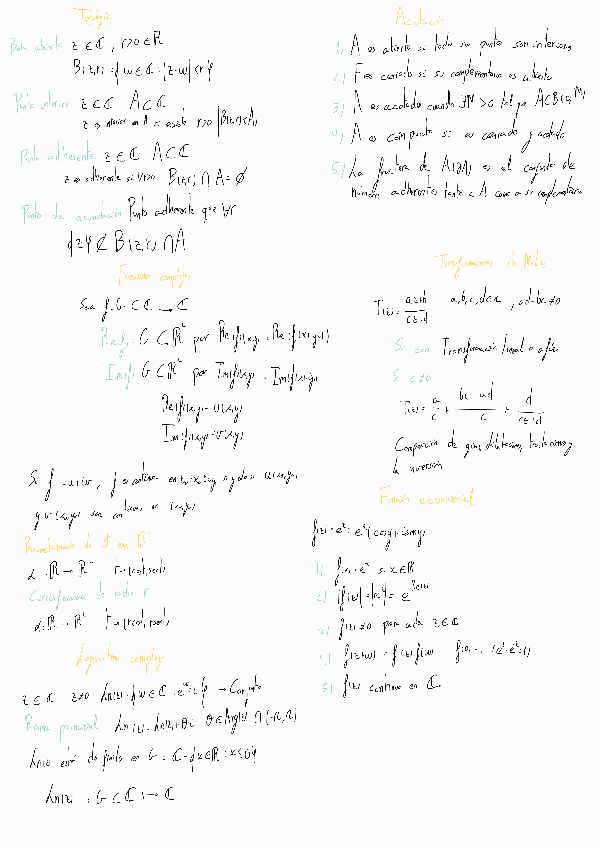 Topología
Bola abierta z ∈ ℂ, r>0 ∈ ℝ
B(z,r) = {w ∈ ℂ : |z-w| < r}
Punto interior z ∈ ℂ A ⊂ ℂ
z es interior en A = existe r>0 | B(z,r) ⊂ A
Punto adherente z ∈ ℂ A ⊂ ℂ
z es adherente si ∀r>0 B(z,r) ∩ A = ∅
Punto de acumulación Punto adherente que ∀r
{z} ⊄ B(z,r) ∩ A
Funciones complejas
Sea f: G ⊂ ℂ → ℂ
Re(f): G ⊂ ℝ² por Re(f)(x,y) = Re(f(x+yi))
Im(f): G ⊂ ℝ² por Im(f)(x,y) = Im(f(x+yi))
Re(f)(x,y) = u(x,y)
Im(f)(x,y) = v(x,y)
Si f = u+iv, f es continua en si y solo si u(x,y)
y v(x,y) son continuas en (x0,y0)
Parametrización de en ℝ²
α: ℝ → ℝ² t → (cost, sent)
Circunferencia de radio r
α: ℝ → ℝ² t → (rcost, rsent)
Logaritmo complejo
z ∈ ℂ z≠0 Ln(z) = {w ∈ ℂ : e^w = z} → Conjunto
Rama principal Ln(z) = Ln|z| + θi θ ∈ Arg(z) ∩ (-π,π)
Ln(z) está definido en G = ℂ - {x ∈ ℝ : x ≤ 0}
Ln(z) : G ⊂ ℂ → ℂ
Acotación
1) A es abierto si todos sus puntos son interiores
2) F es cerrado si su complementario es abierto
3) A es acotado cuando ∃M >0 tal que A ⊂ B(0,M)
4) A es compacto si es cerrado y acotado
5) La frontera de A (∂A) es el conjunto de
números adherentes tanto a A como a su complementario
Transformaciones de Möbius
T(z) = (az+b)/(cz+d) a,b,c,d ∈ ℂ, ad-bc ≠ 0
Si c=0 Transformación lineal o afín
Si c≠0
T(z) = a/c + (bc - ad)/c + d/(cz+d)
Composición de giros, dilataciones, traslaciones y
la inversión
Función exponencial
f(z) = e^z = e^x (cosy + iseny)
1) f(x) = e^x si x ∈ ℝ
2) |f(z)| = |e^z| = e^Re(z)
3) f(z) ≠ 0 para cada z ∈ ℂ
4) f(z+w) = f(z) f(w)
5) f(z) continua en ℂ